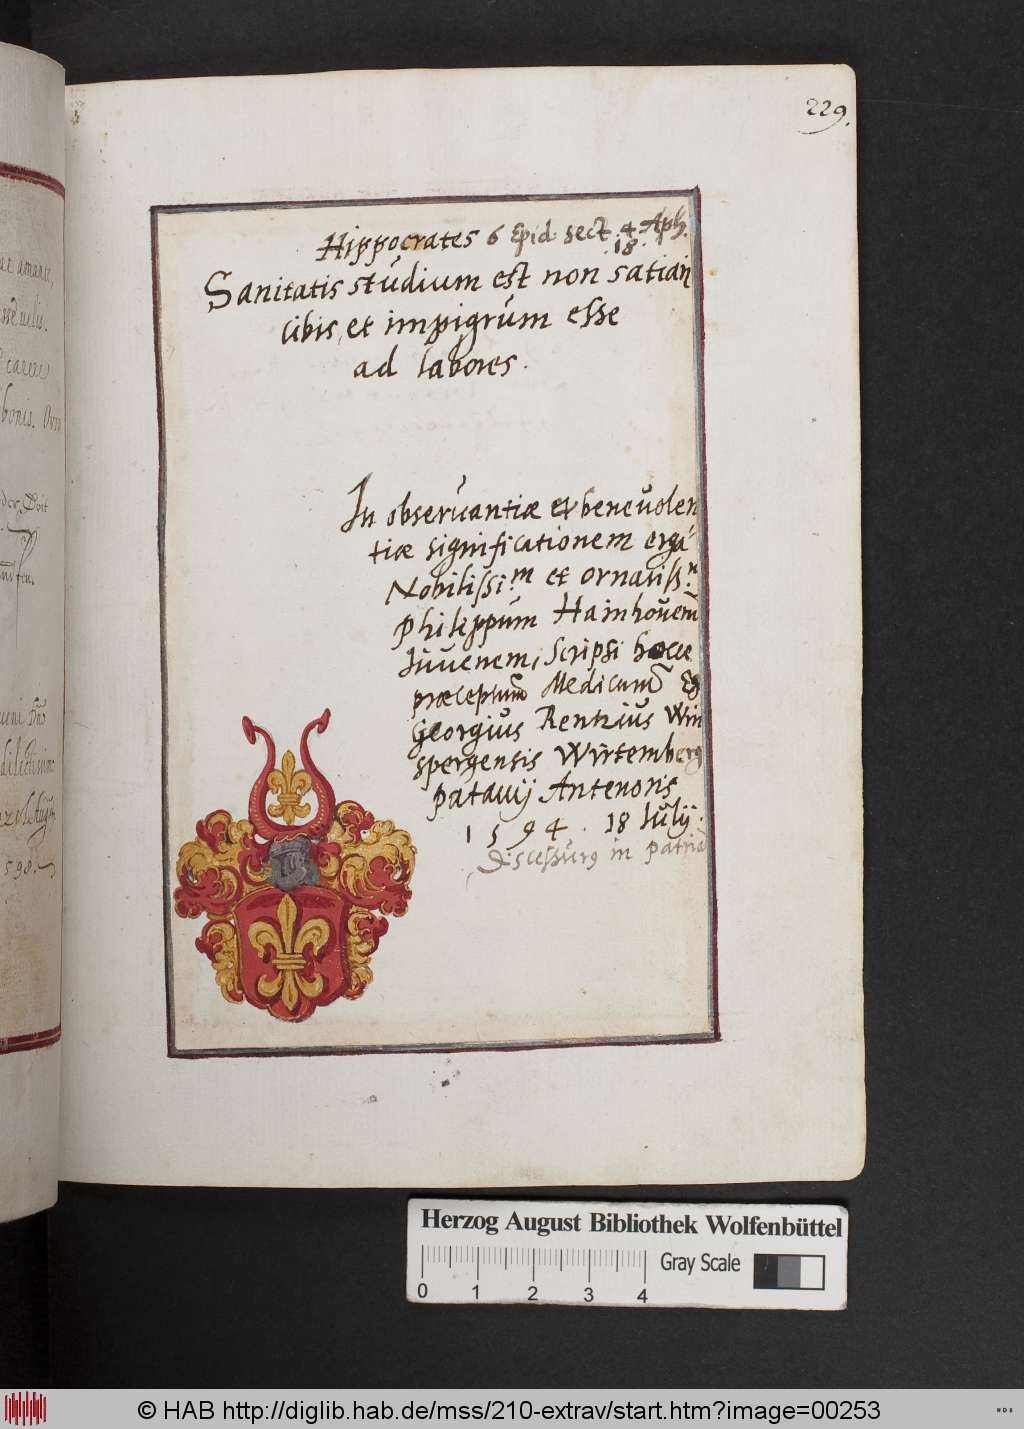 229.
Hippocrates 6 Epid. sect. 4. Aph.
18.
Sanitatis studium est non satiari
cibis, et impigrum esse
ad labores.
In observantiæ et benevolen
tiæ significationem ergà
Nobilissi.m et ornatiss.m
Philippum Hainhouerũ
Iuvenem, scripsi hocce
præceptum Medicum
Georgius Renttius Win
spergensis Wirtemberg
patavij Antenoris
1594. 18 Iulij.
Discessurg in patriã
at amante,
bonis.
598.
Herzog August Bibliothek Wolfenbüttel
Gray Scale
0 1 2 3 4
© HAB http://diglib.hab.de/mss/210-extrav/start.htm?image=00253